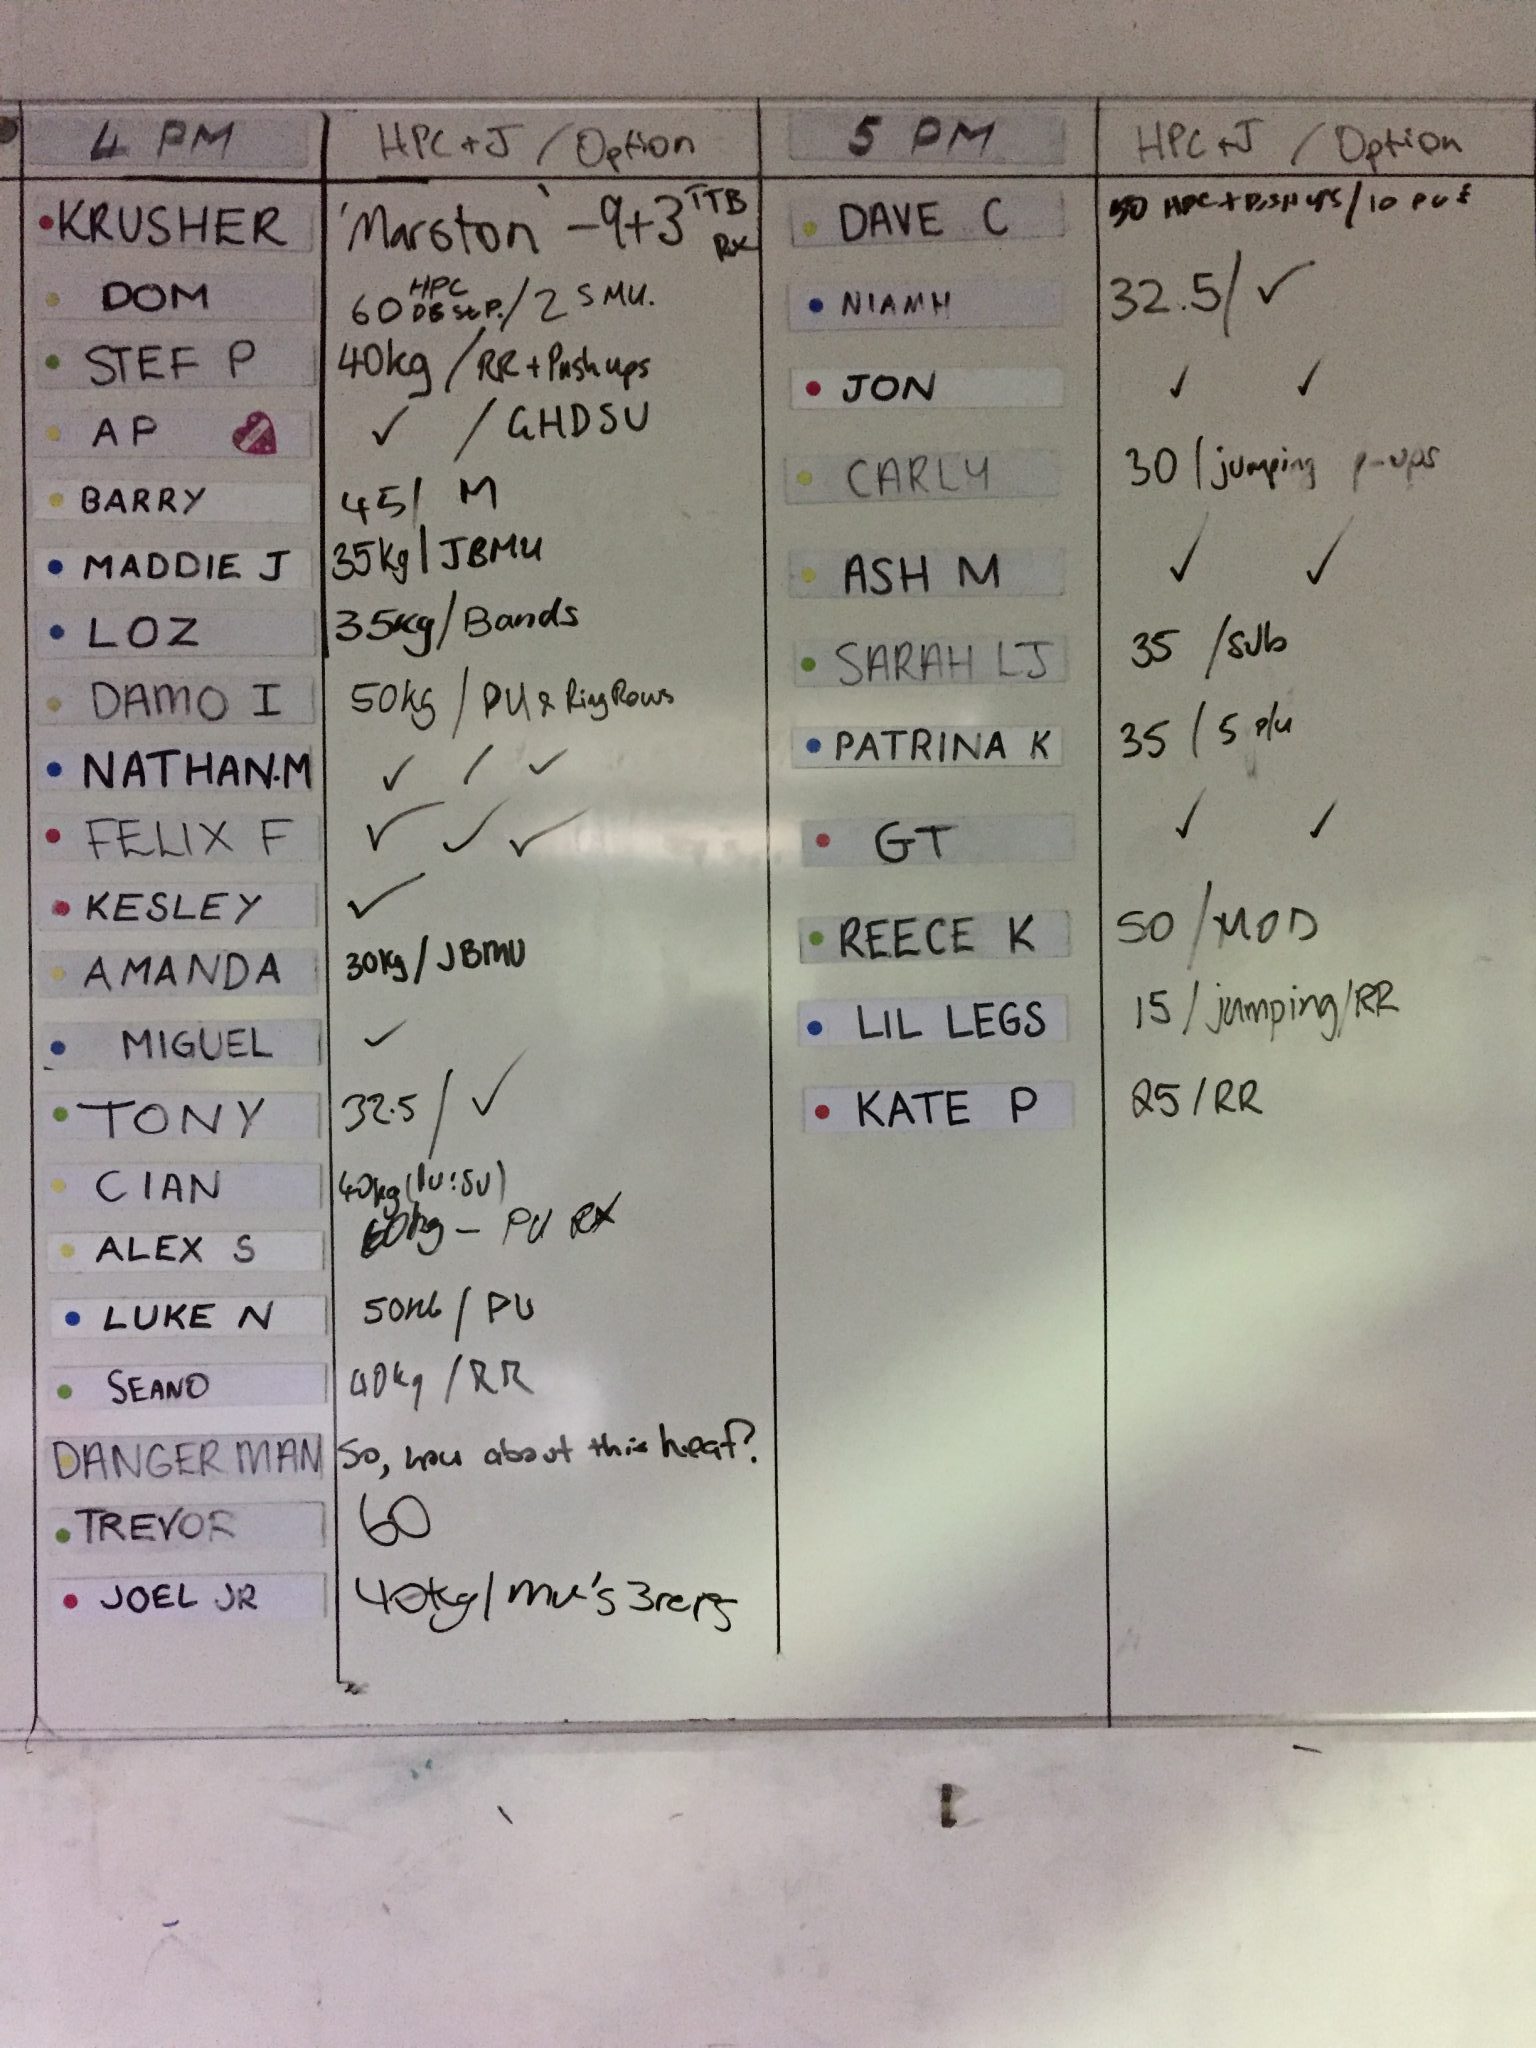 4 PM HPC+J / Option
KRUSHER 'Marston' - 9+3 TTB RX
DOM 60 HPC DB / 2 SMU.
STEF P 40kg / RR + Pushups
AP ✓ / GHDSU
BARRY 45 / M
MADDIE J 35kg / JBMU
LOZ 35kg / Bands
DAMO I 50kg / PU & Ring Rows
NATHAN.M ✓ / ✓
FELIX F ✓ ✓ ✓
KESLEY ✓
AMANDA 30kg / JBMU
MIGUEL ✓
TONY 32.5 / ✓
CIAN 40kg
ALEX S 60kg - PU RX
LUKE N 50KG / PU
SEANO 40kg / RR
DANGERMAN So, how about this heat?
TREVOR 60
JOEL JR 40kg / mu's 3reps
5 PM HPC+J / Option
DAVE C 50 HPC + PUSH UPS / 10
NIAMH 32.5 / ✓
JON ✓ ✓
CARLY 30 / jumping p-ups
ASH M ✓ ✓
SARAH LJ 35 / sub
PATRINA K 35 / 5 p/u
GT ✓ ✓
REECE K 50 / MOD
LIL LEGS 15 / jumping / RR
KATE P 25 / RR